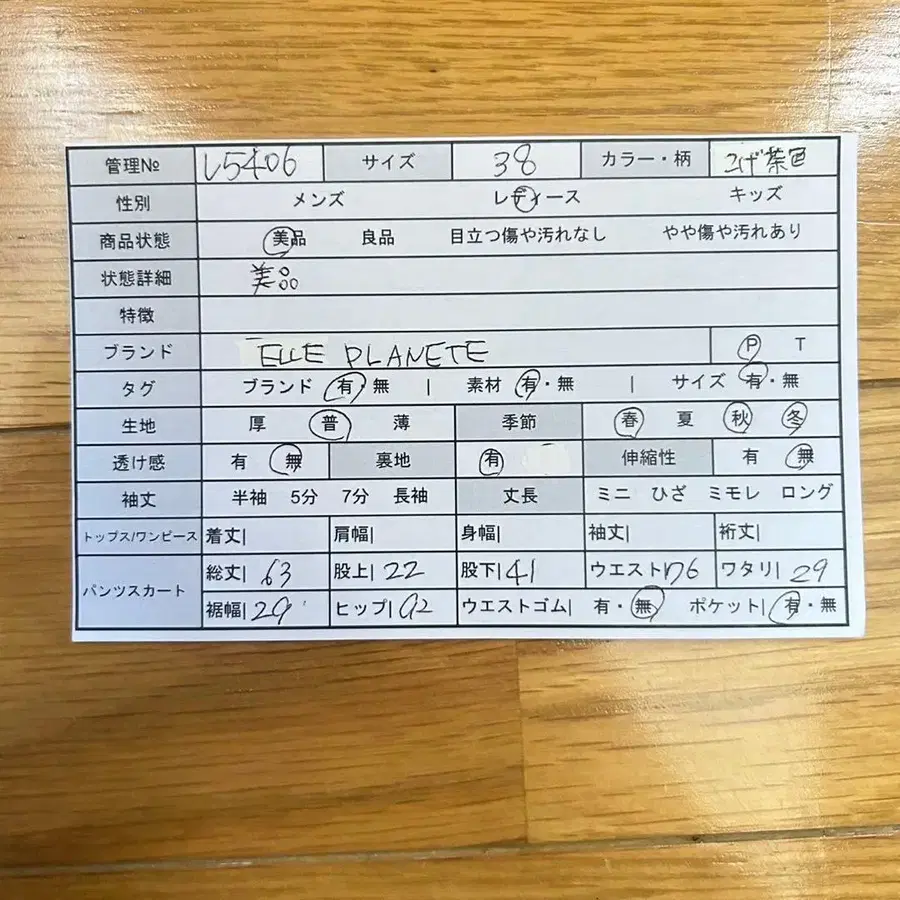 管理№ し5406 サイズ 38 カラー・柄 こげ茶色
性別 メンズ レディース キッズ
商品状態 美品 良品 目立つ傷や汚れなし やや傷や汚れあり
状態詳細 美品
特徴
ブランド ELLE PLANETE P T
タグ ブランド 有・無 | 素材 有・無 | サイズ 有・無
生地 厚 普 薄 季節 春 夏 秋 冬
透け感 有 無 裏地 有 伸縮性 有 無
袖丈 半袖 5分 7分 長袖 丈長 ミニ ひざ ミモレ ロング
トップス/ワンピース 着丈| 肩幅| 身幅| 袖丈| 裄丈|
パンツスカート 総丈| 63 股上| 22 股下| 41 ウエスト| 76 ワタリ| 29
裾幅| 29 ヒップ| 92 ウエストゴム| 有・無 ポケット| 有・無